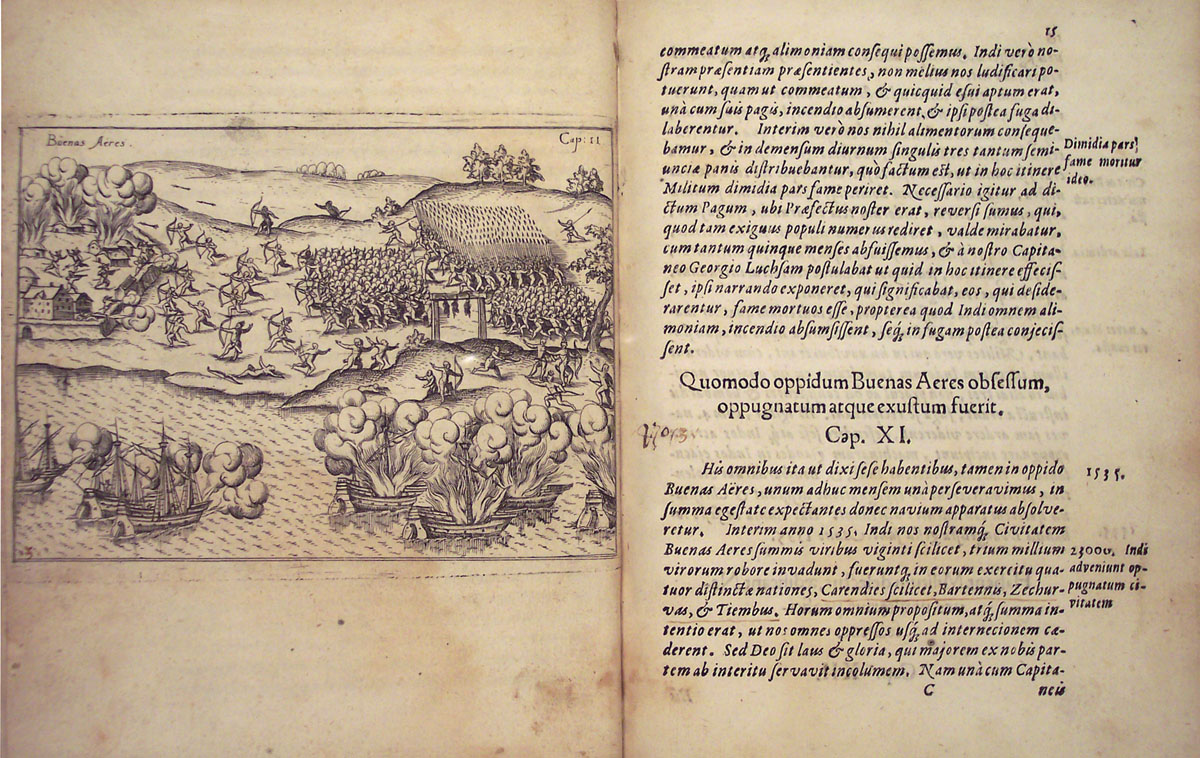 Buenas Aeres.
Cap: 11
15
commeatum atq; alimoniam consequi possemus. Indi verò no-
stram præsentiam præsentientes, non melius nos ludificari po-
tuerunt, quam ut commeatum, & quicquid esui aptum erat,
unà cum suis pagis, incendio absumerent, & ipsi postea fuga di-
laberentur. Interim verò nos nihil alimentorum conseque-
bamur, & in demensum diurnum singulis tres tantum semi-
unciæ panis distribuebantur, quò factum est, ut in hoc itinere
Militum dimidia pars fame periret. Necessario igitur ad di-
ctum Pagum, ubi Præfectus noster erat, reversi sumus, qui,
quod tam exiguus populi numerus rediret, valde mirabatur,
cum tantum quinque menses abfuissemus, & à nostro Capita-
neo Georgio Luchsam postulabat ut quid in hoc itinere effecis-
set, ipsi narrando exponeret, qui significabat, eos, qui deside-
rarentur, fame mortuos esse, propterea quod Indi omnem ali-
moniam, incendio absumsissent, seq; in fugam postea conjecis-
sent.
Dimidia pars
fame moritur
ideo.
Quomodo oppidum Buenas Aeres obsessum,
oppugnatum atque exustum fuerit.
Cap. XI.
His omnibus ita ut dixi sese habentibus, tamen in oppido
Buenas Aëres, unum adhuc mensem unà perseveravimus, in
summa egestate expectantes donec navium apparatus absolve-
retur. Interim anno 1535. Indi nos nostramq; Civitatem
Buenas Aeres summis viribus viginti scilicet, trium millium
virorum robore invadunt, fueruntq; in eorum exercitu qua-
tuor distinctæ nationes, Carendies scilicet, Bartennis, Zechur-
vas, & Tiembus. Horum omnium propositum, atq; summa in-
tentio erat, ut nos omnes oppressos usq; ad internecionem cæ-
derent. Sed Deo sit laus & gloria, qui majorem ex nobis par-
tem ab interitu servavit incolumem. Nam unà cum Capita-
C neis
1535.
23000. Indi
adveniunt op-
pugnatum ci-
vitatem